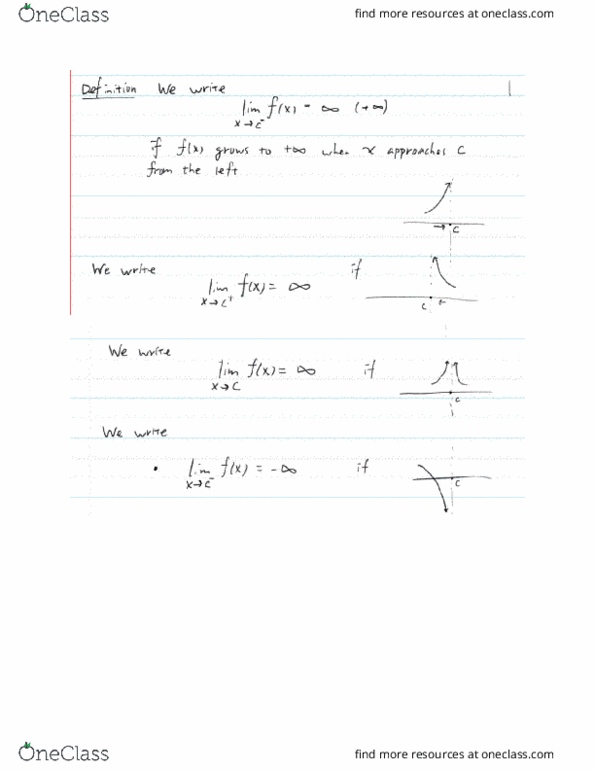 OneClass find more resources at oneclass.com
Definition We write 1
lim f(x) = ∞ (+∞)
x→c⁻
if f(x) grows to +∞ when x approaches c
from the left
→ c
We write if
lim f(x) = ∞
x→c⁺
c ←
We write
lim f(x) = ∞ if
x→c
c
We write
• lim f(x) = -∞ if
x→c⁻
c
OneClass find more resources at oneclass.com